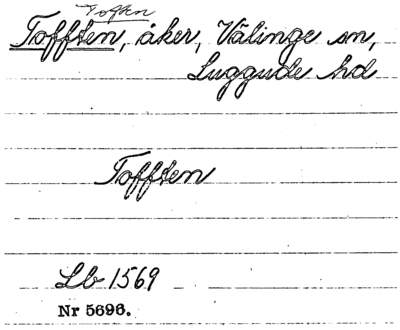 Toften
Tofften, åker, Välinge sn,
Luggude hd
Tofften
Lb 1569
Nr 5696.